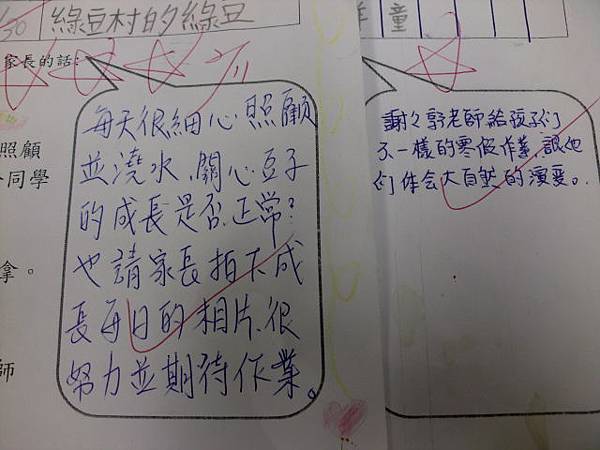 30 綠豆村的綠豆
家長的話:
每天很細心照顧
並澆水、關心豆子
的成長是否正常?
也請家長拍下成
長每日的相片、很
努力並期待作業。
照顧
同學
拿。
師
童
謝々郭老師給孩子们
不一樣的寒假作業,讓他
们体会大自然的演变。